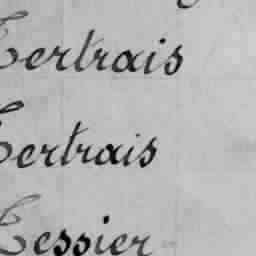 Tertrais
Tertrais
Tessier